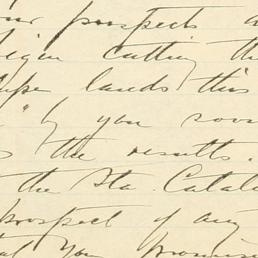 our prospects a
begin cutting th
lands this
" by you soon
the results.
the Sta. Catal
prospect of any
you promise